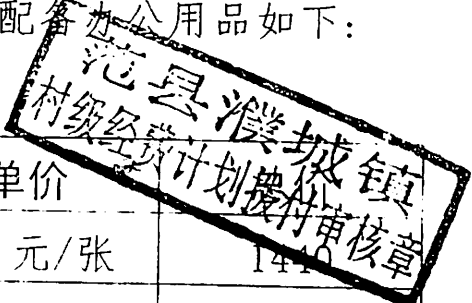 配备办公用品如下:
范县濮城镇
村级经费计划拨付审核章
单价
元/张
1440